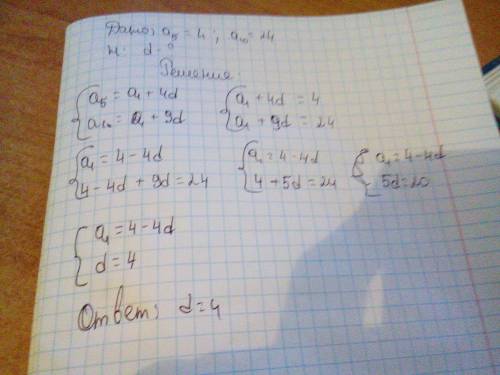 Дано: a₅ = 4 ; a₁₀ = 24
Н: d - ?
Решение:
{ a₅ = a₁ + 4d
{ a₁₀ = a₁ + 9d
{ a₁ + 4d = 4
{ a₁ + 9d = 24
{ a₁ = 4 - 4d
{ 4 - 4d + 9d = 24
{ a₁ = 4 - 4d
{ 4 + 5d = 24
{ a₁ = 4 - 4d
{ 5d = 20
{ a₁ = 4 - 4d
{ d = 4
Ответ: d = 4